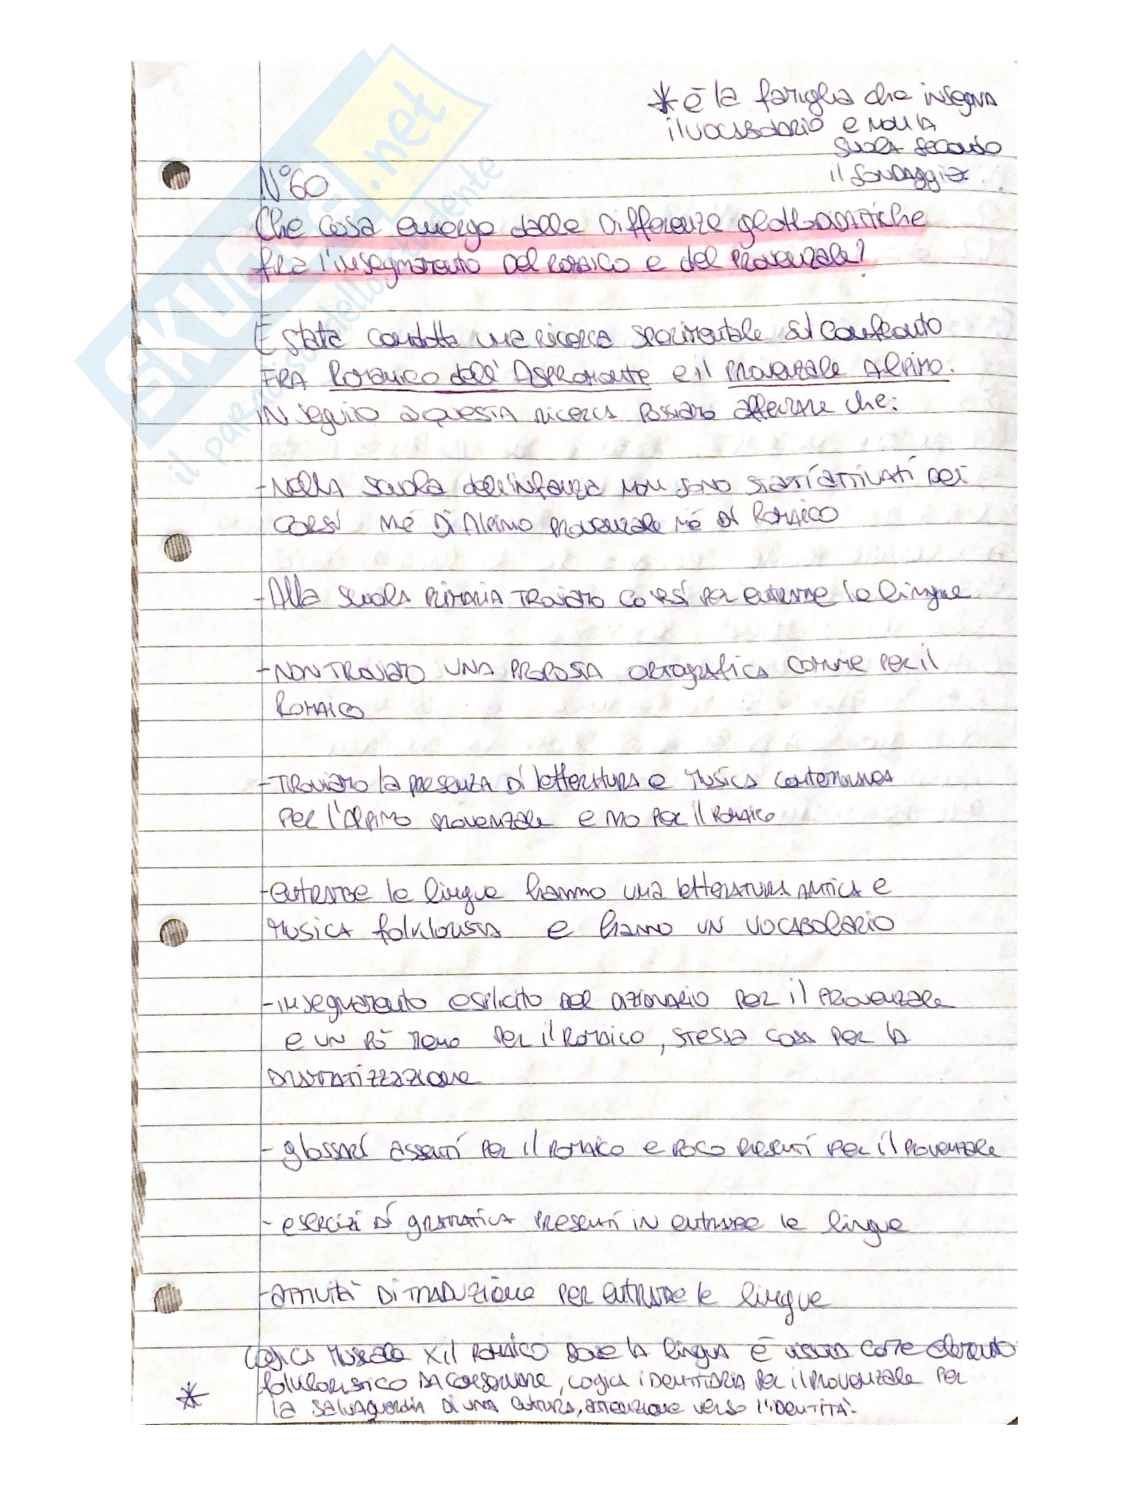 * è la famiglia che insegna
il vocabolario e non la
scuola secondo
il sondaggio.
N°60
Che cosa emerge dalle differenze glottomatiche
fra l'insegnamento del romaico e del provenzale?
È stata condotta una ricerca sperimentale sul confronto
FRA Romaico dell'Aspromonte e il provenzale Alpino.
IN seguito a questa ricerca possiamo affermare che:
-Nella scuola dell'infanzia non sono stati attivati dei
corsi né di Alpino provenzale né di Romaico
-Alla scuola primaria troviamo corsi per entrambe le lingue
-NON TROVIAMO UNA PROPOSTA ortografica comune per il
Romaico
-TROVIAMO la presenza di letteratura e musica contemporanea
per l'alpino provenzale e no per il romaico
-entrambe le lingue hanno una letteratura antica e
musica folklorista e hanno un vocabolario
-insegnamento esplicito per il provenzale
e un pò meno per il romaico, stessa cosa per la
- glossari assenti per il romaico e poco presenti per il provenzale
- esercizi di grammatica presenti in entrambe le lingue
-attività di traduzione per entrambe le lingue
Logica museale x il romaico dove la lingua è vissuta come elemento
folkloristico da conservare, logica identitaria per il provenzale per
* la salvaguardia di una cultura, attenzione verso l'identità.
SKUOLA.net
il paradiso dello studente